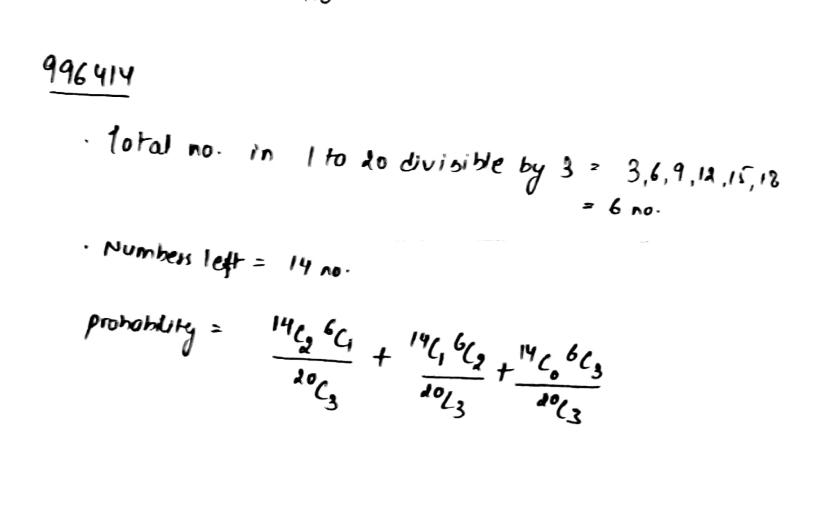 996414
· Total no. in 1 to 20 divisible by 3 = 3,6,9,12,15,18
= 6 no.
· Numbers left = 14 no.
probability = ¹⁴C₂ ⁶C₁ / ²⁰C₃ + ¹⁴C₁ ⁶C₂ / ²⁰C₃ + ¹⁴C₀ ⁶C₃ / ²⁰C₃